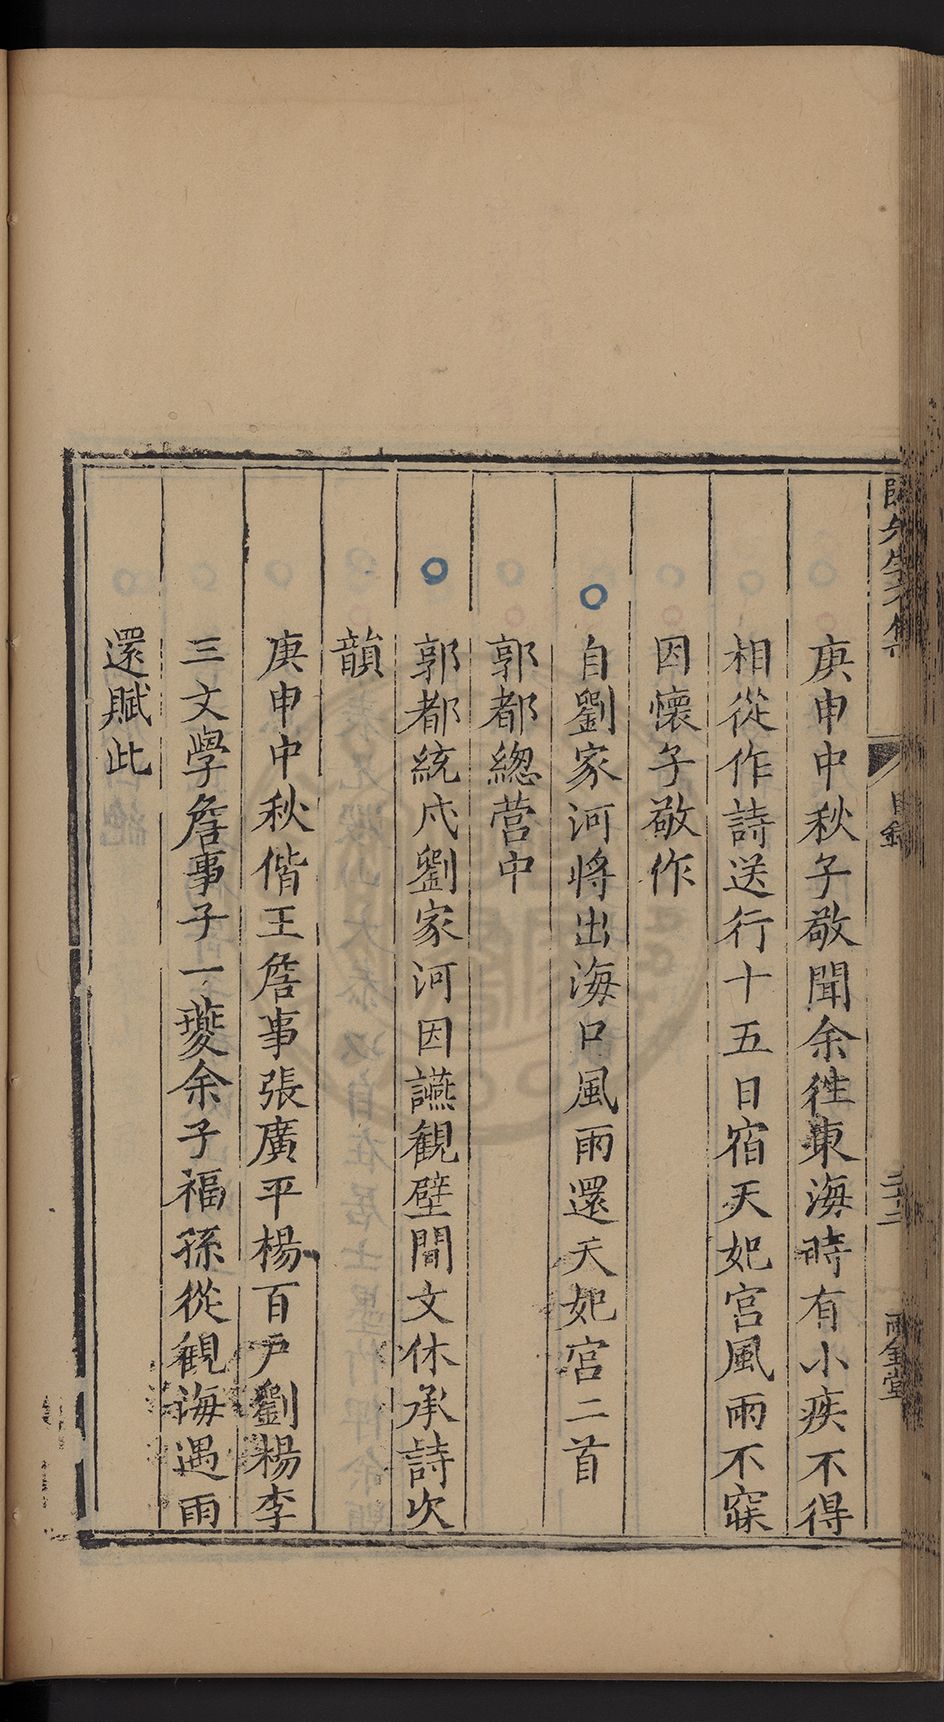 庚申中秋子敬聞余徃東海時有小疾不得
相從作詩送行十五日宿天妃宮風雨不寐
因懷子敬作
自劉家河將出海口風雨還天妃宮二首
郭都總营中
郭都統戍劉家河因讌観壁間文休承詩次
韻
庚申中秋偕王詹事張廣平楊百戶劉楊李
三文學詹事子一夔余子福孫從観海遇雨
還賦此